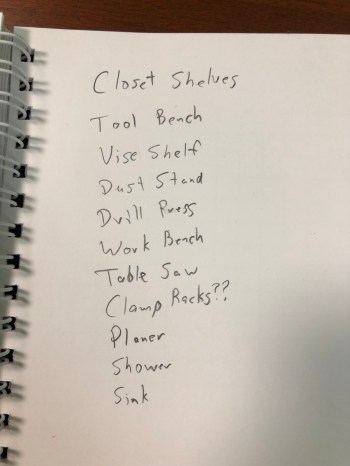 Closet Shelves
Tool Bench
Vise Shelf
Dust Stand
Drill Press
Work Bench
Table Saw
Clamp Racks??
Planer
Shower
Sink